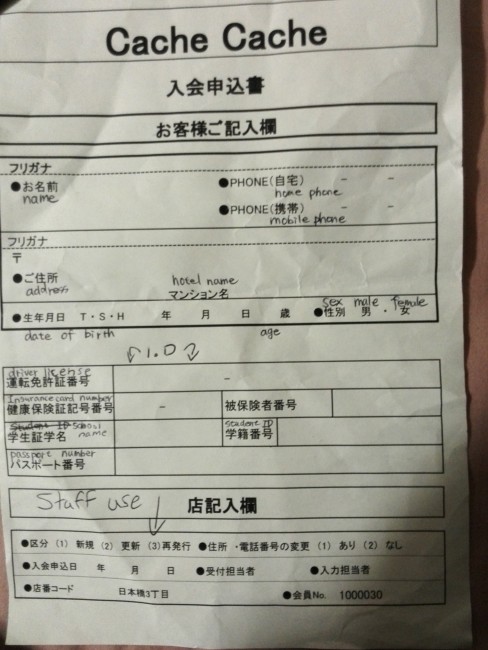 Cache Cache
入会申込書
お客様ご記入欄
フリガナ
●お名前 ●PHONE(自宅) - -
name home phone
●PHONE(携帯) - -
mobile phone
フリガナ
〒
●ご住所 hotel name
address マンション名
sex male female
●生年月日 T・S・H 年 月 日 歳 ●性別 男・女
date of birth age
I.D
driver license
運転免許証番号 -
Insurance card number
健康保険証記号番号 - 被保険者番号
Student ID School student ID
学生証学名 name 学籍番号
passport number
パスポート番号
Staff use 店記入欄
●区分 (1) 新規 (2) 更新 (3)再発行 ●住所・電話番号の変更 (1) あり (2) なし
●入会申込日 年 月 日 ●受付担当者 ●入力担当者
●店番コード 日本橋3丁目 ●会員No. 1000030